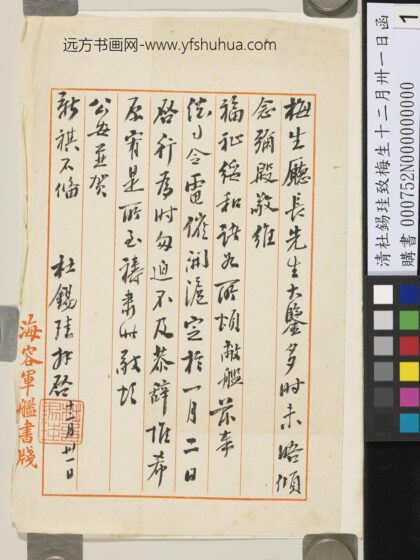 远方书画网-www.yfshuhua.com
梅生廳長先生大鑒多時未晤傾
念彌殷敬維
福祉綏和諸如所頌敝艦茲奉
總司令電催開滬定於一月二日
啓行為時匆迫不及恭辭惟希
原宥是所至禱肅此敬頌
公安並賀
新祺不備
杜錫珪拜啓
十二月卅一日
海容軍艦書牋
清杜錫珪致梅生十二月卅一日函
購書 000752N000000000
1